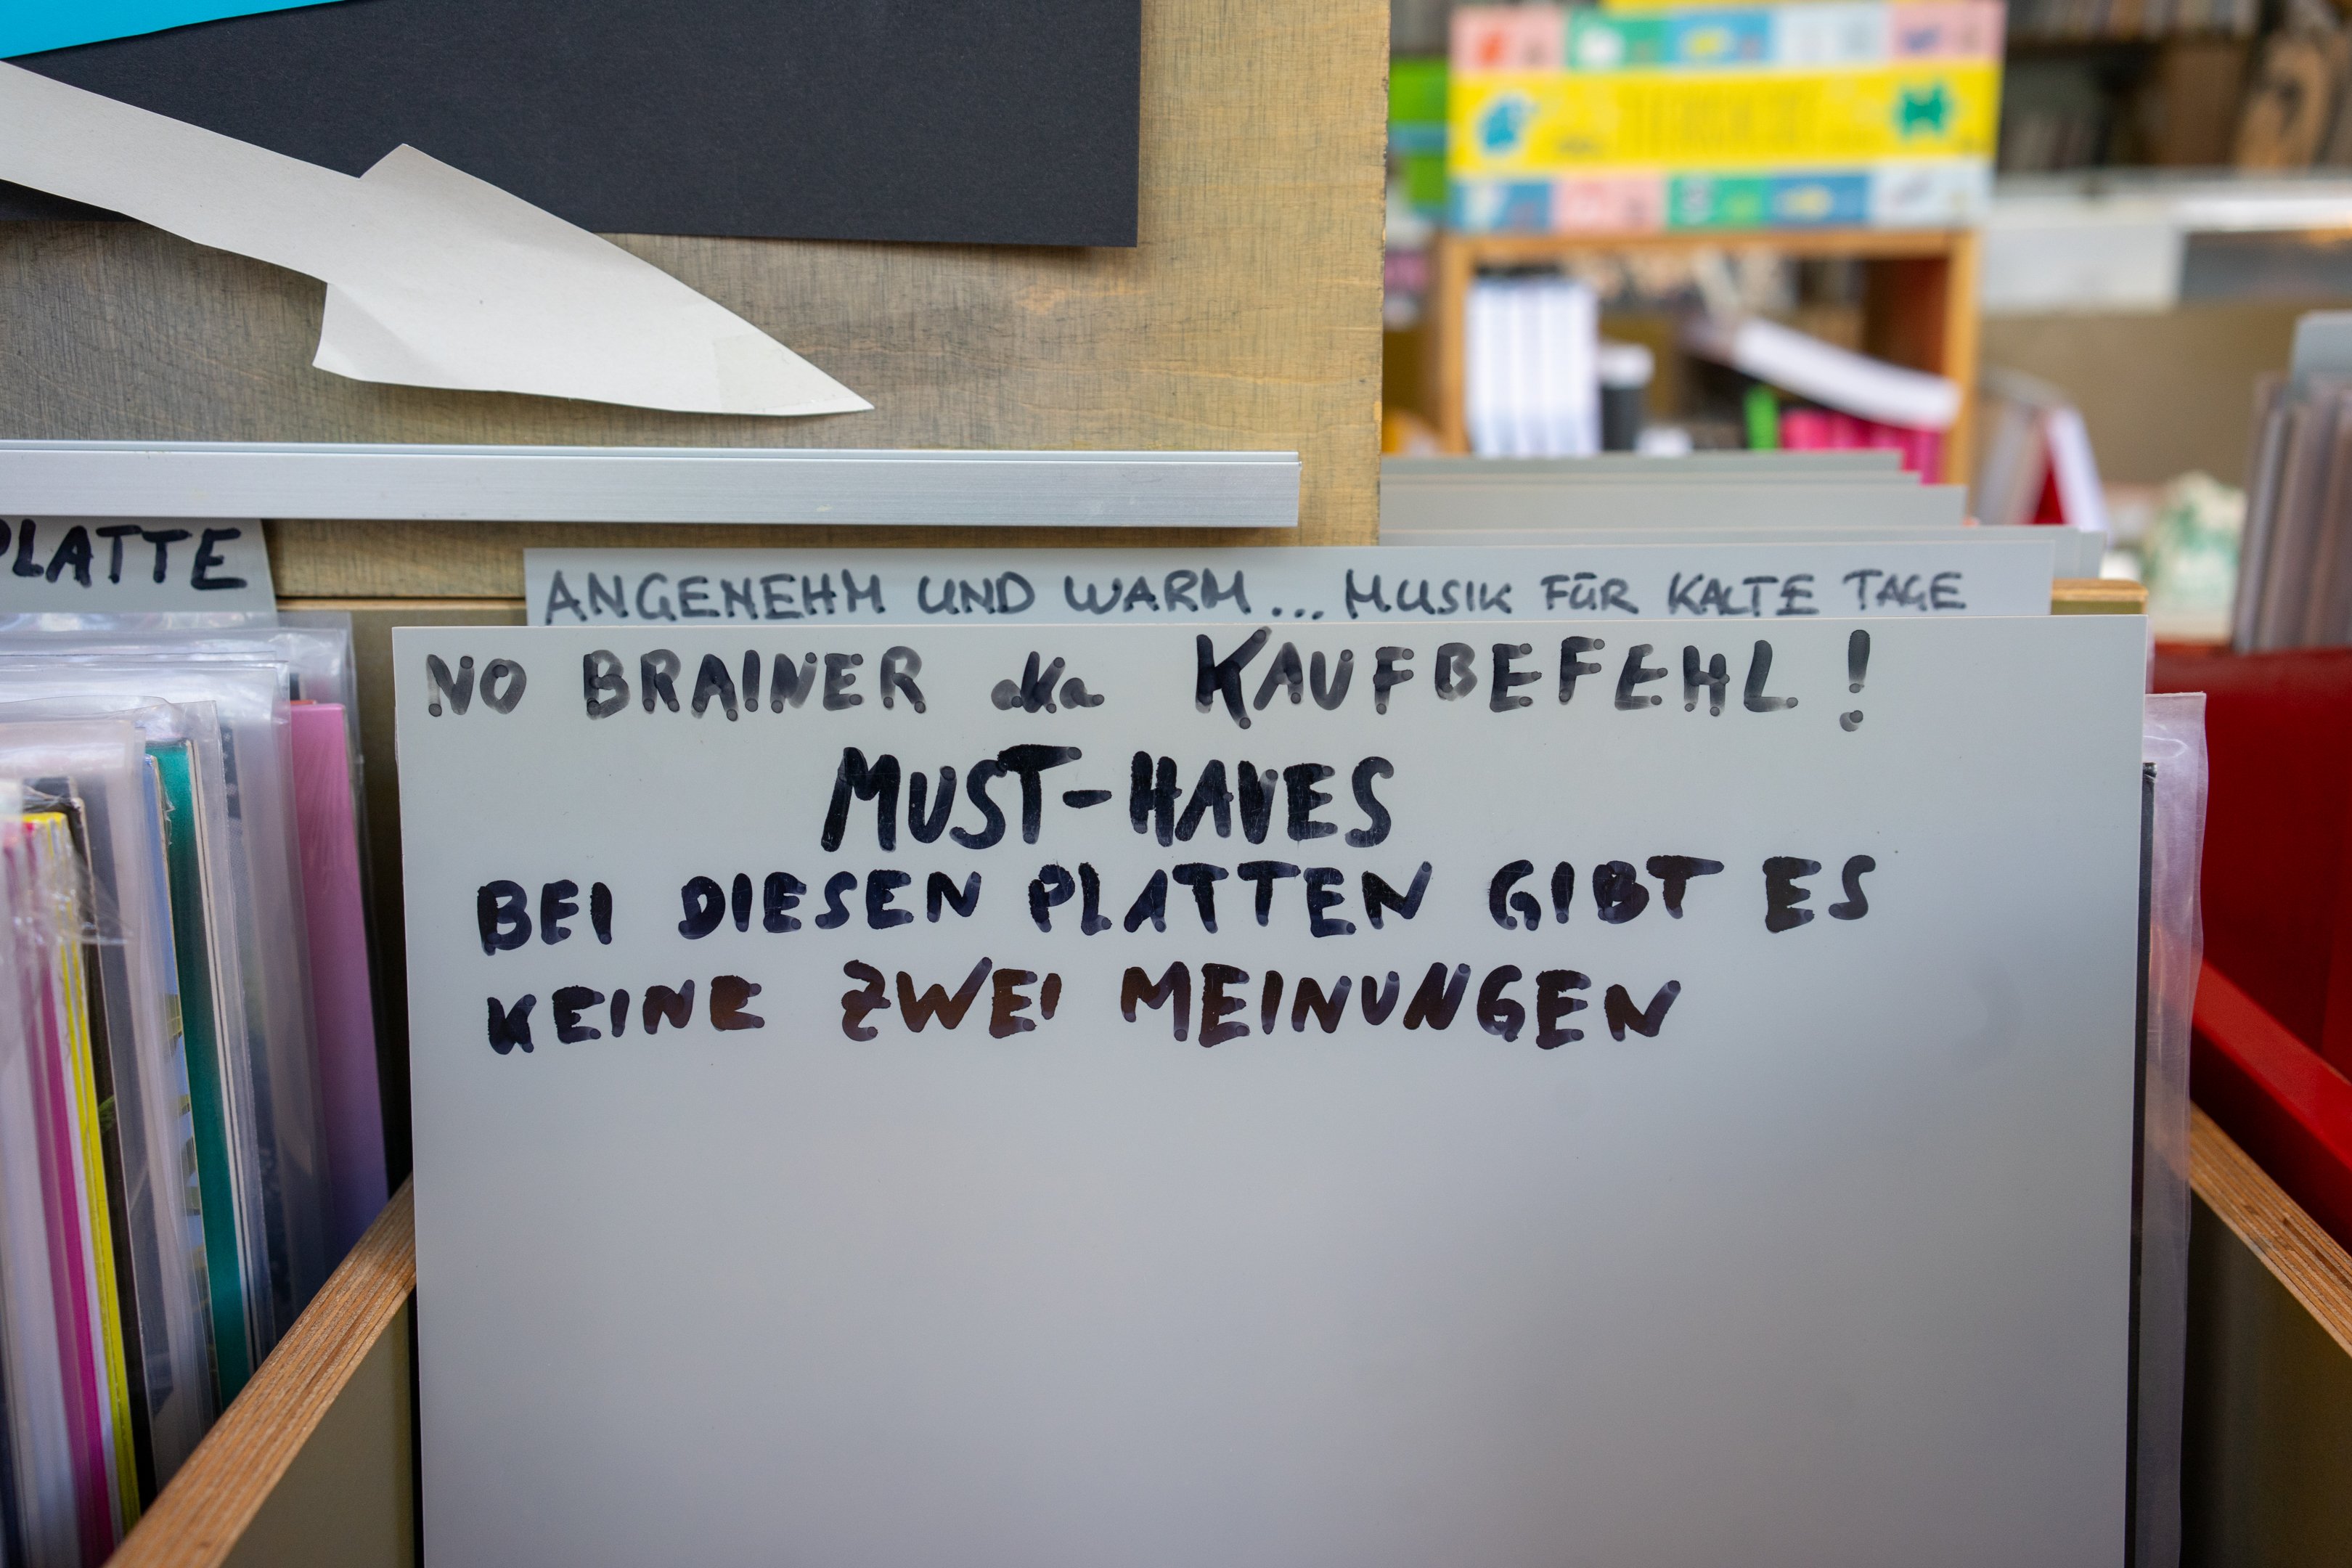 PLATTE
ANGENEHM UND WARM... MUSIK FÜR KALTE TAGE
NO BRAINER aka KAUFBEFEHL!
MUST-HAVES
BEI DIESEN PLATTEN GIBT ES
KEINE ZWEI MEINUNGEN